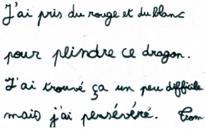 J'ai pris du rouge et du blanc
pour plindre ce dragon.
J'ai trouvé ça un peu difficile
mais j'ai persévéré. Tom